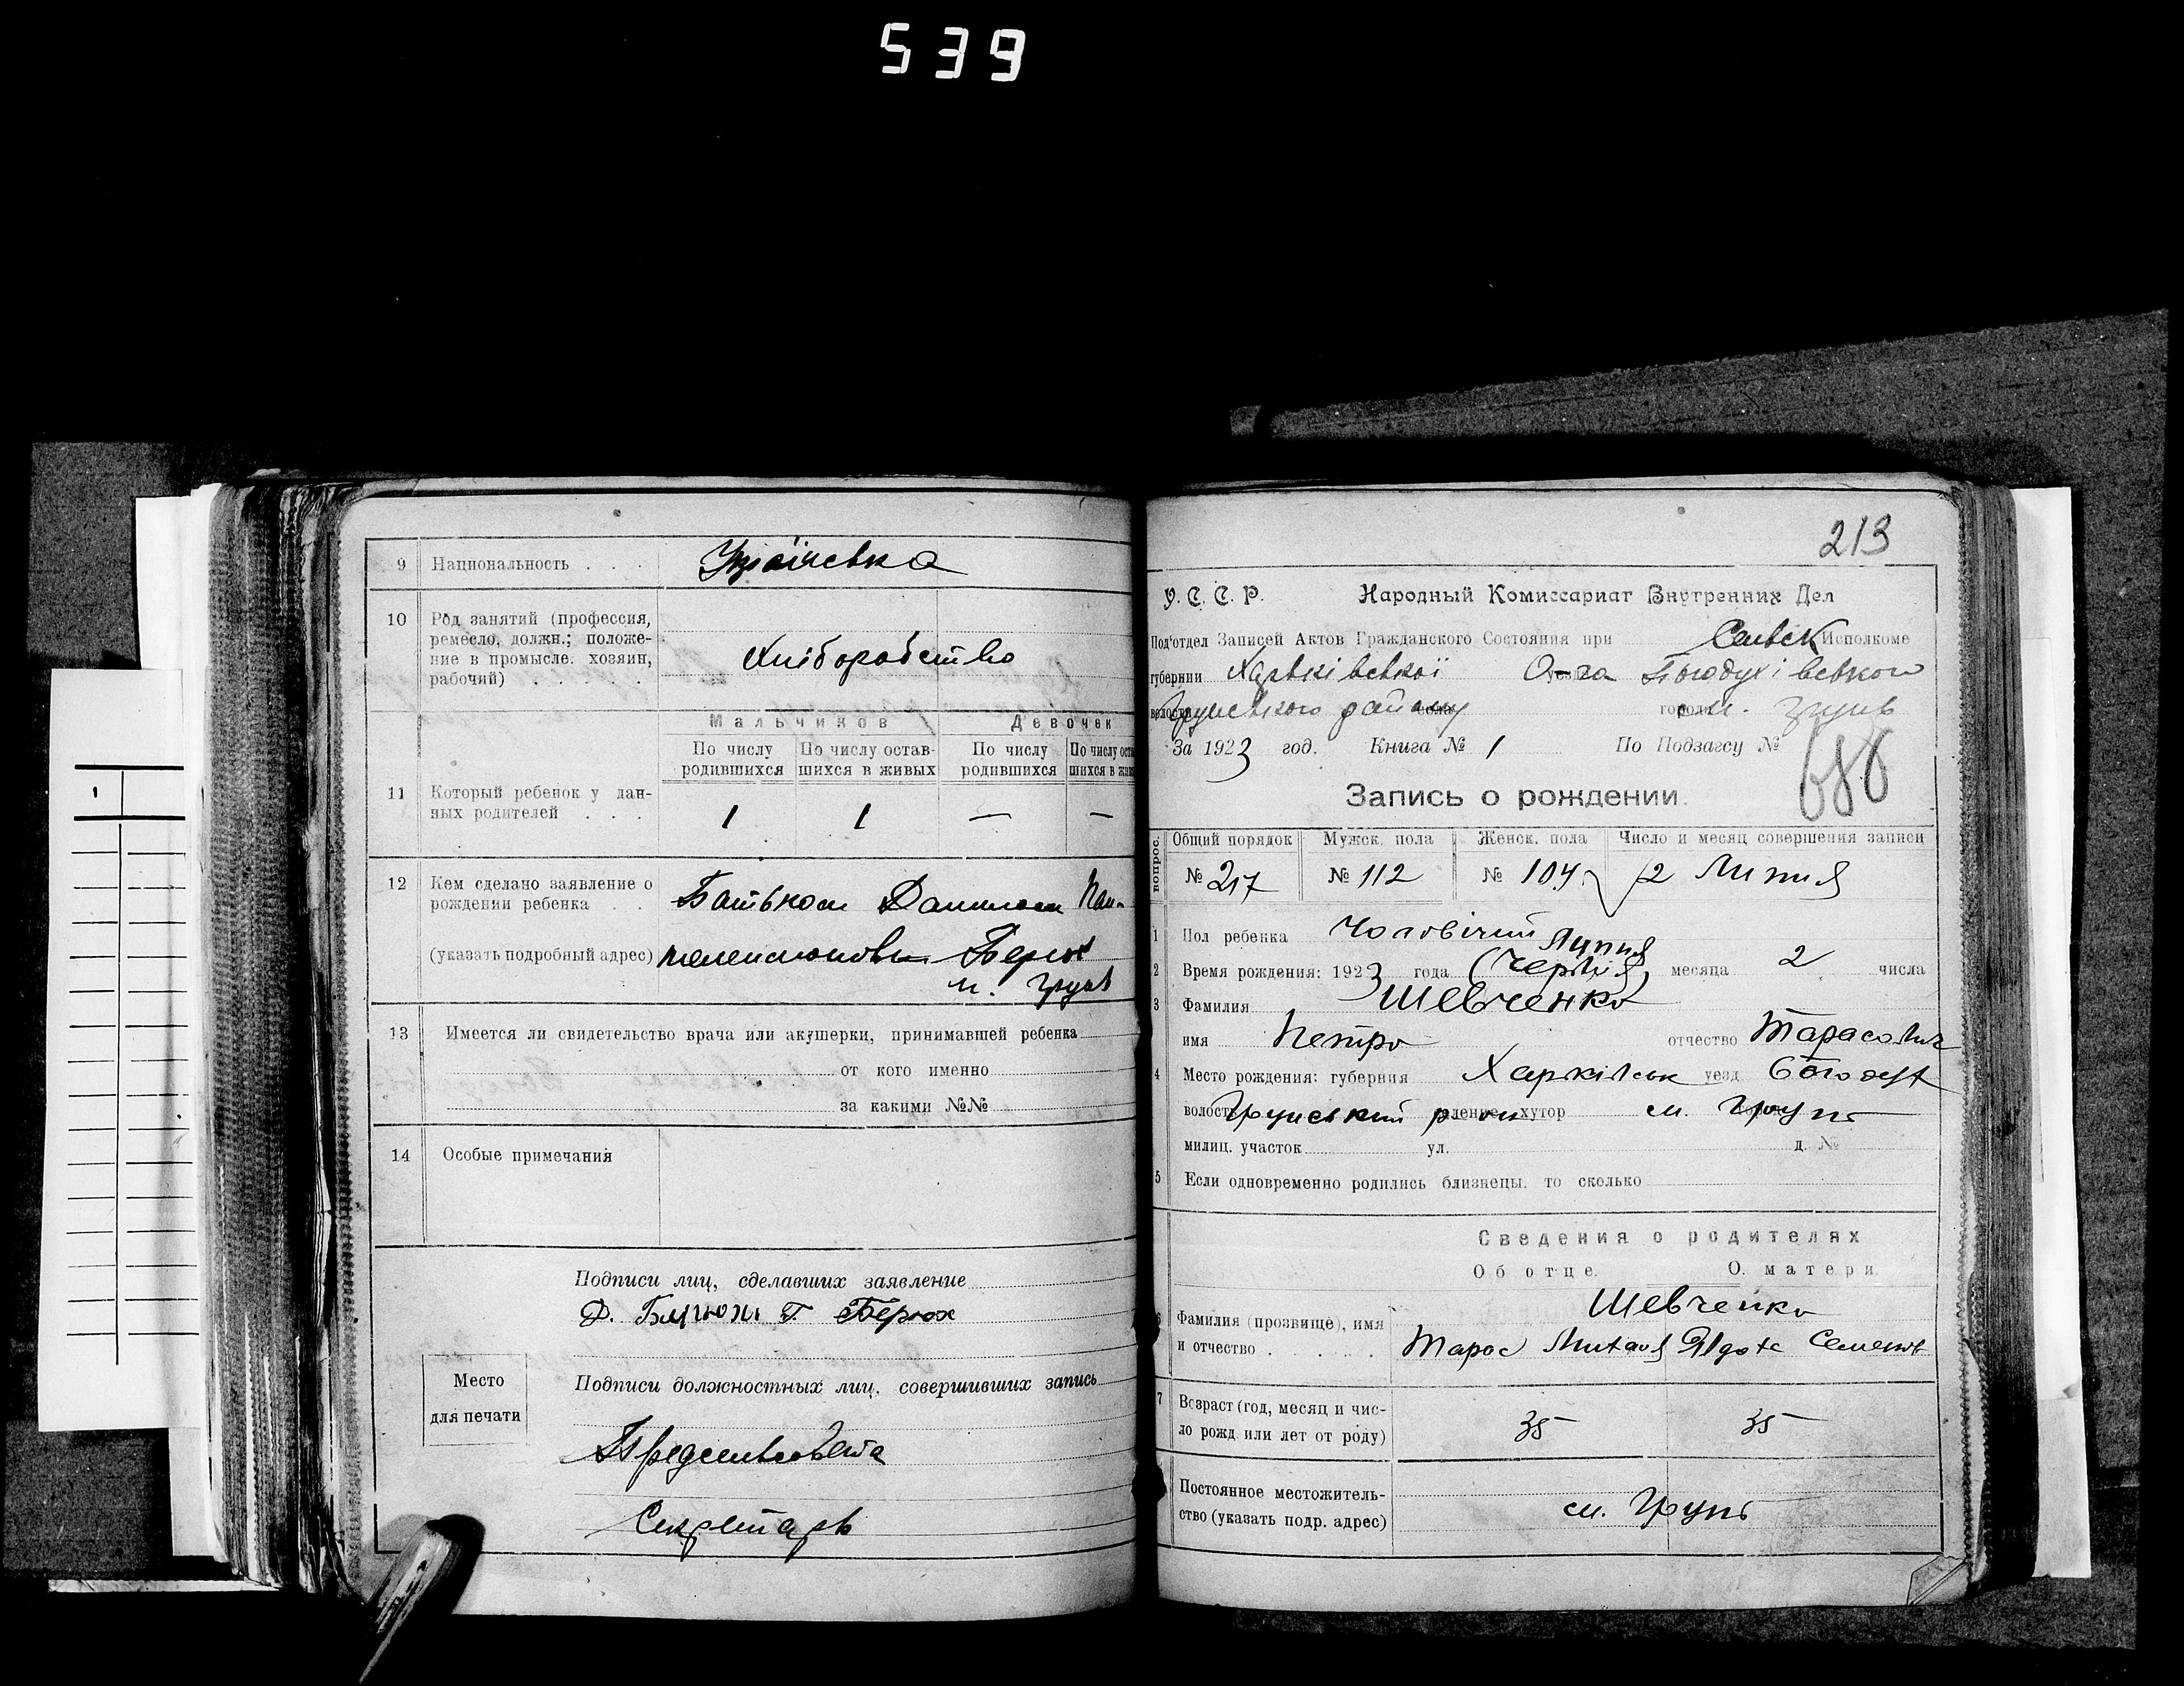 539
9 Национальность . . . Украінська
10 Род занятий (профессия,
ремесло, должн.; положе-
ние в промысле: хозяин,
рабочий) . . . . .
Хліборобство
Мальчиков Девочек
По числу родившихся По числу остав-шихся в живых По числу родившихся По числу оста шихся в жив
11 Который ребенок у дан-
ных родителей . . .
1 1 — —
12 Кем сделано заявление о
рождении ребенка . .
(указать подробный адрес)
Батьком Данилом Пан-
телеймонов Берюх
м. Грунь
13 Имеется ли свидетельство врача или акушерки, принимавшей ребенка
от кого именно
за какими №№
14 Особые примечания
Подписи лиц, сделавших заявление
Д. Г. Берюх
Место
для печати
Подписи должностных лиц, совершивших запись
Предсельсовета
Секретарь
1
213
У. С. С. Р. Народный Комиссариат Внутренних Дел
Под'отдел Записей Актов Гражданского Состояния при Сельск Исполкоме
губернии Харьківської О-га Богодухівського
волости Грунського району села города м. Грунь
За 1923 год. Книга № 1 По Подзагсу №
688
Запись о рождении.
вопрос. Общий порядок Мужск. пола Женск. пола Число и месяц совершения записи
№ 217 № 112 № 104 2 Липня
1 Пол ребенка Чоловічий
Липня
2 Время рождения: 1923 года (Червня) месяца 2 числа
3 Фамилия Шевченко
имя Петро отчество Тарасович
4 Место рождения: губерния Харківськ уезд Богодух
волость Грунський р-он хутор м. Грунь
милиц. участок ул. д. №
5 Если одновременно родились близнецы, то сколько
Сведения о родителях
Об отце. О матери.
Шевченко
6 Фамилия (прозвище), имя
и отчество . . . . .
Тарас Михайл Явдоха Семенов
7 Возраст (год, месяц и чис-
ло рожд. или лет от роду)
35 35
Постоянное местожитель-
ство (указать подр. адрес)
м. Грунь